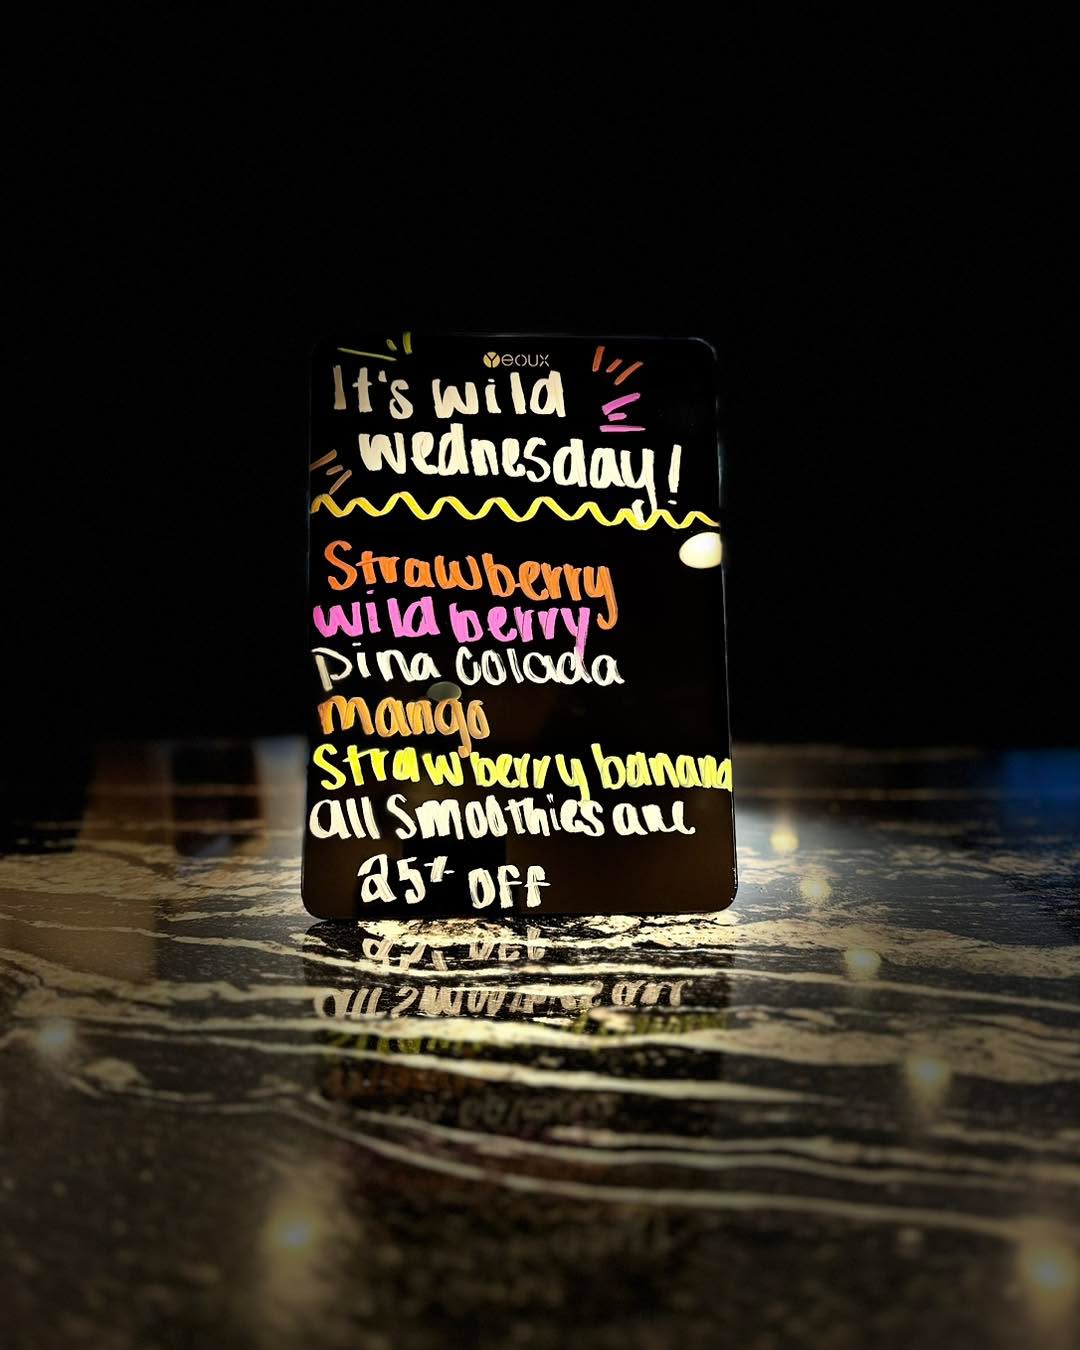 Yeoux
It's wild
wednesday!
Strawberry
wild berry
pina colada
mango
Strawberry banana
all smoothies are
25% off